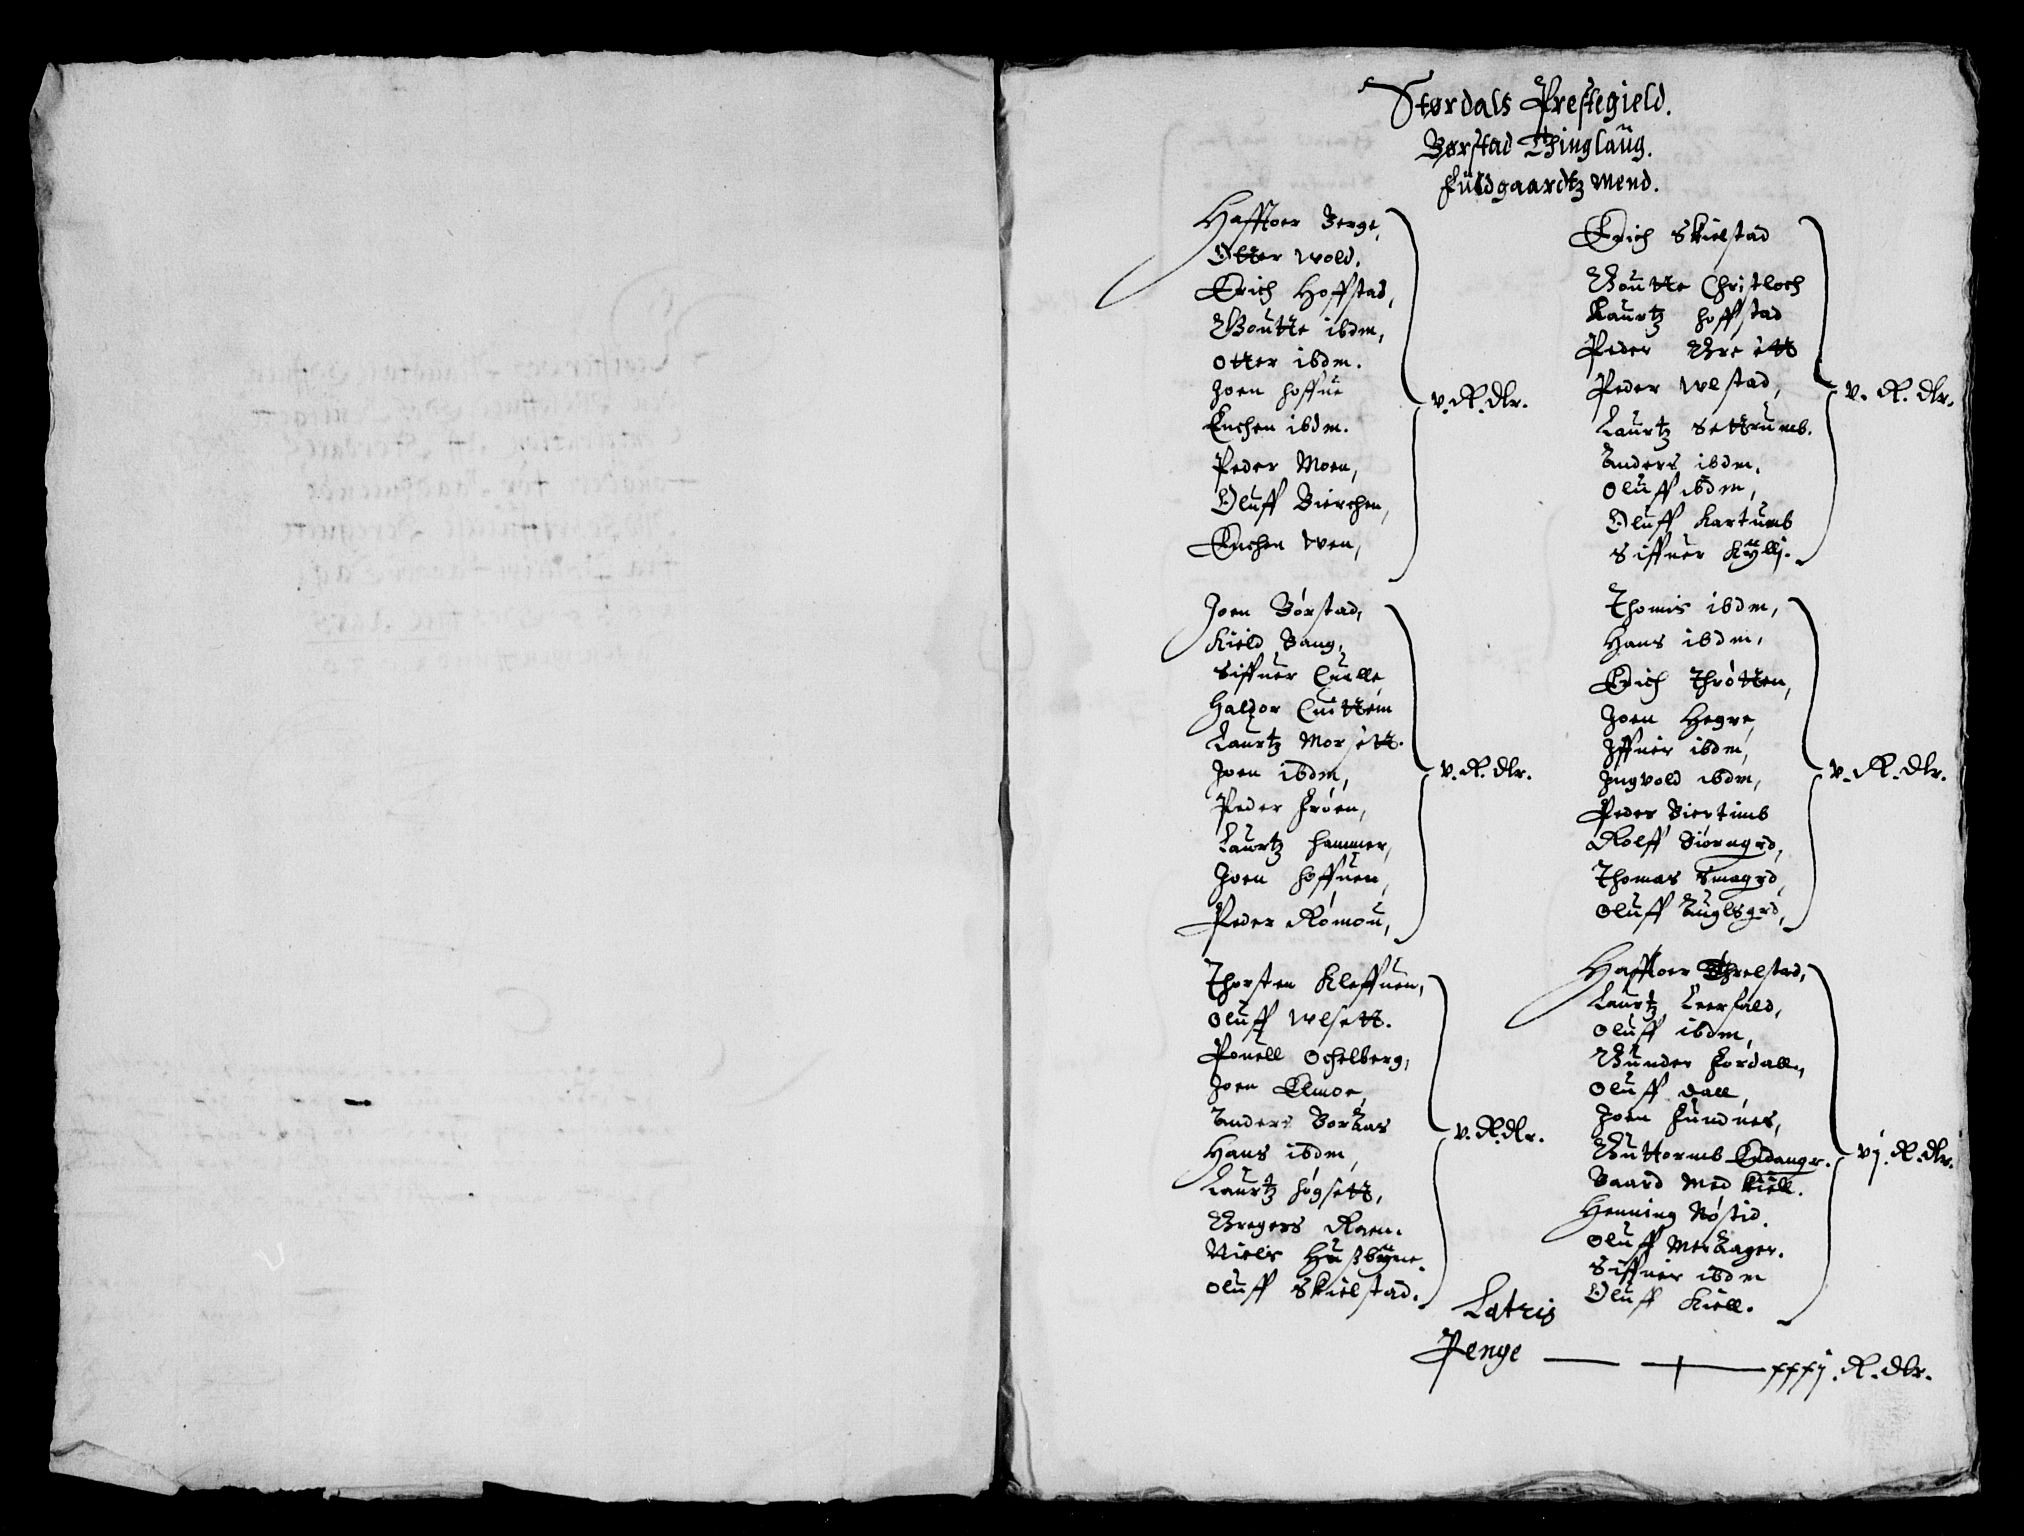 Størdals Prestegield.
Børstad Thinglaug.
Fuldgaardtz Mend.
Haffloer Berge,
Otter Wold.
Erich Hoffstad,
Goutte ibdm,
Otter ibdm.
Joen Hoffue
Enchen ibdm.
Peder Moen,
Oluff Bierchen,
Enchen Wen,
v. R. dlr.
Joen Børstad,
Kield Bang,
Siffuer Quelle
Haldor Quittem
Laurtz Morsett.
Joen ibdm,
Peder Frøen,
Laurtz Hammer,
Joen Hoffuen,
Peder Rømou,
v. R. dlr.
Thorsten Kleffuen,
Oluff Wlsett.
Pouell Ochelberg,
Joen Elmoe,
Anders Boraas
Hans ibdm,
Laurtz Høgsett,
Gregers Raen.
Niels Husbyne.
Oluff Skielstad.
v. R. dlr.
Erich Skielstad
Goutte Christloch
Laurtz Hoffstad
Peder Gresett
Peder Wlstad,
Laurtz Settrumb.
Anders ibdm,
Oluff ibdm,
Oluff Kartumb
Siffuer Kyllj.
v. R. dlr.
Thomis ibdm,
Hans ibdm,
Erich Thrøtten,
Joen Hegre,
Iffuer ibdm,
Ingvold ibdm,
Peder Biertimb
Rolff Biørngrd,
Thomas Smagrd,
Oluff Auglsgrd,
v. R. dlr.
Haffloer Threlstad,
Laurtz Leerfald,
Oluff ibdm,
Gunder Fordall,
Oluff Dall,
Joen Fundnes,
Guttormb Endangr.
Baard Med Kiell.
Henning Nøstid.
Oluff Meraager.
Siffuer ibdm
Oluff Kiell.
vj. R. dlr.
Latris
Penge — xxxj. R. dlr.